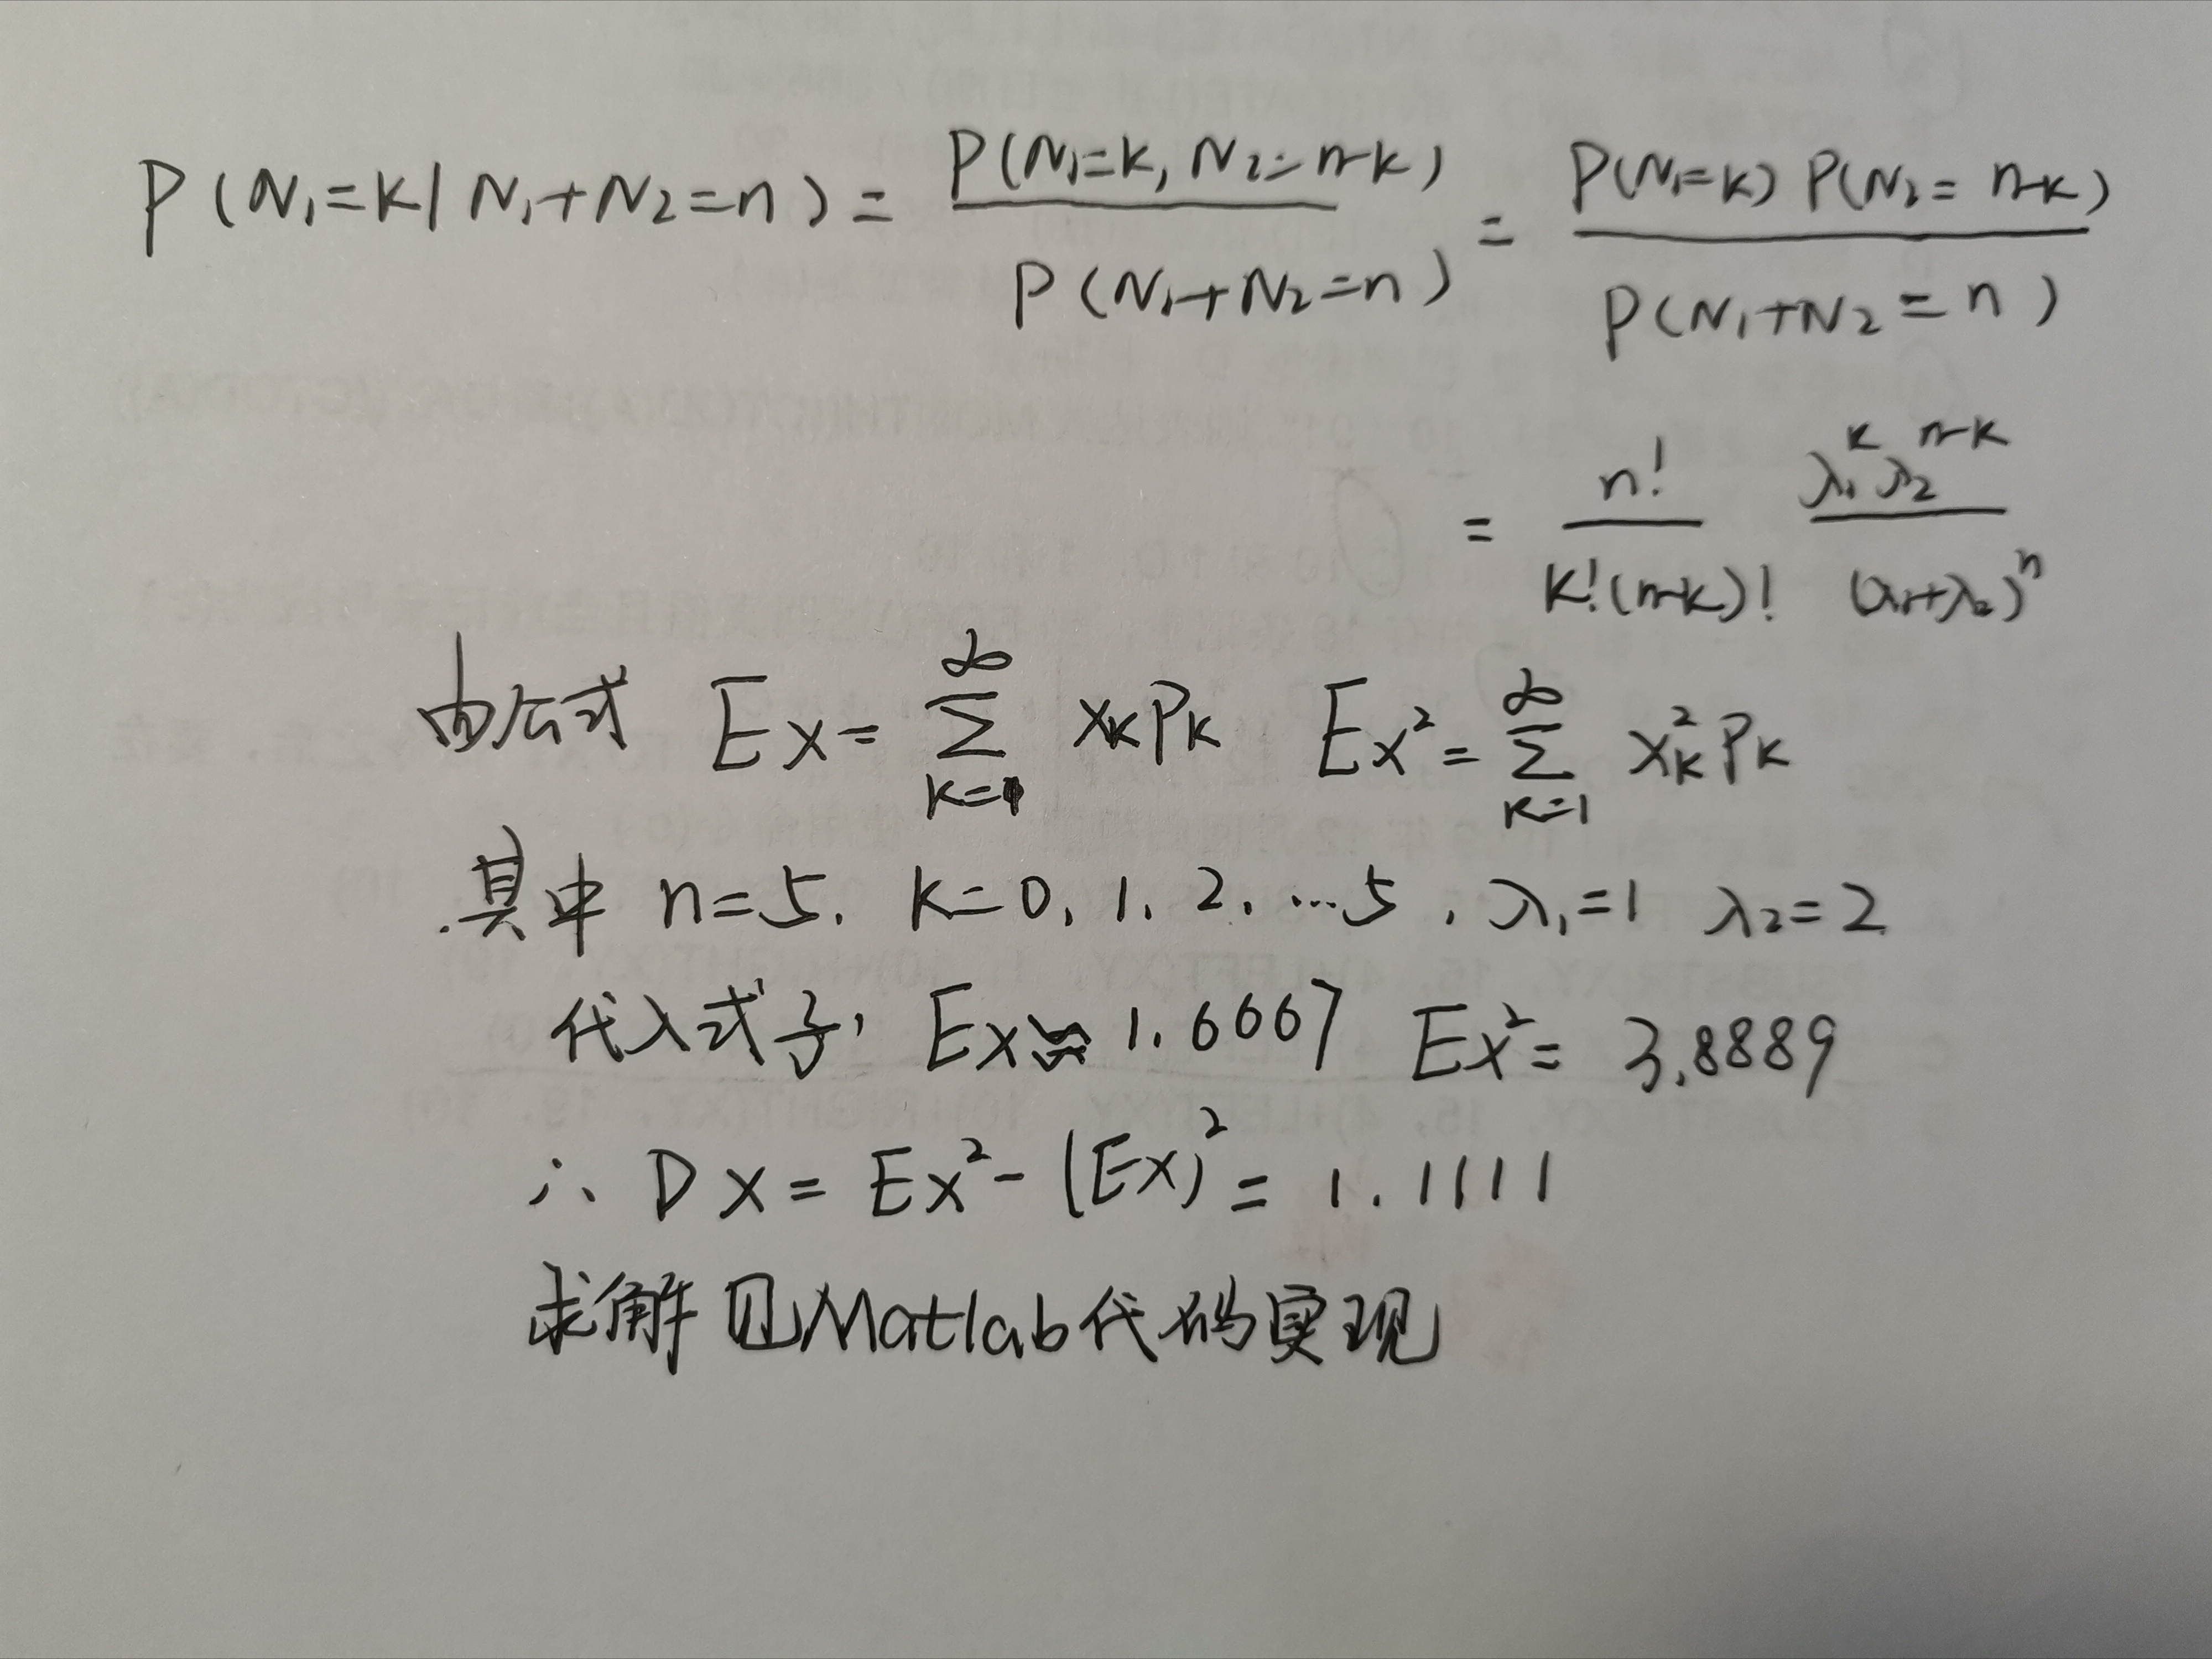 P(N₁=k|N₁+N₂=n) = P(N₁=k, N₂=n-k) / P(N₁+N₂=n) = P(N₁=k) P(N₂=n-k) / P(N₁+N₂=n)
= n! / k!(n-k)! λ₁^k λ₂^(n-k) / (λ₁+λ₂)^n
由公式 Ex = ∑_{k=1}^{∞} x_k P_k Ex² = ∑_{k=1}^{∞} x_k² P_k
其中 n=5, k=0, 1, 2, …5, λ₁=1 λ₂=2
代入式子, Ex≈1.6667 Ex²=3.8889
∴ Dx = Ex² - (Ex)² = 1.1111
求解见Matlab代码实现